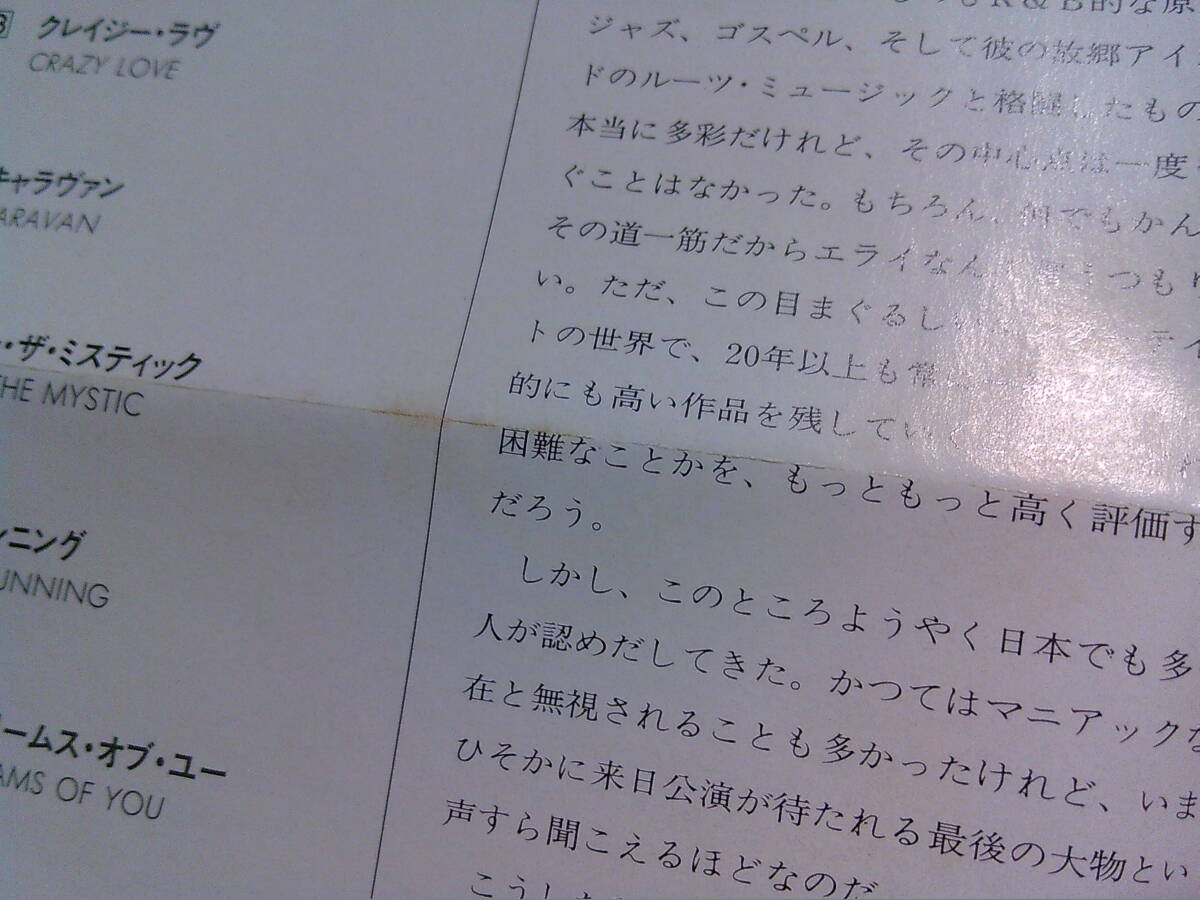 クレイジー・ラヴ
CRAZY LOVE
キャラヴァン
ARAVAN
・ザ・ミスティック
THE MYSTIC
ニング
UNNING
ームス・オブ・ユー
AMS OF YOU
R&B的な原
ジャズ、ゴスペル、そして彼の故郷アイ
ドのルーツ・ミュージックと格闘したもの
本当に多彩だけれど、その中心点は一度
ぐことはなかった。もちろん、何でもかん
その道一筋だからエライなん つもり
い。ただ、この目まぐるしい
トの世界で、20年以上も常
的にも高い作品を残していく
困難なことかを、もっともっと高く評価す
だろう。
しかし、このところようやく日本でも多
人が認めだしてきた。かつてはマニアックな
在と無視されることも多かったけれど、いま
ひそかに来日公演が待たれる最後の大物とい
声すら聞こえるほどなのだ
こうした